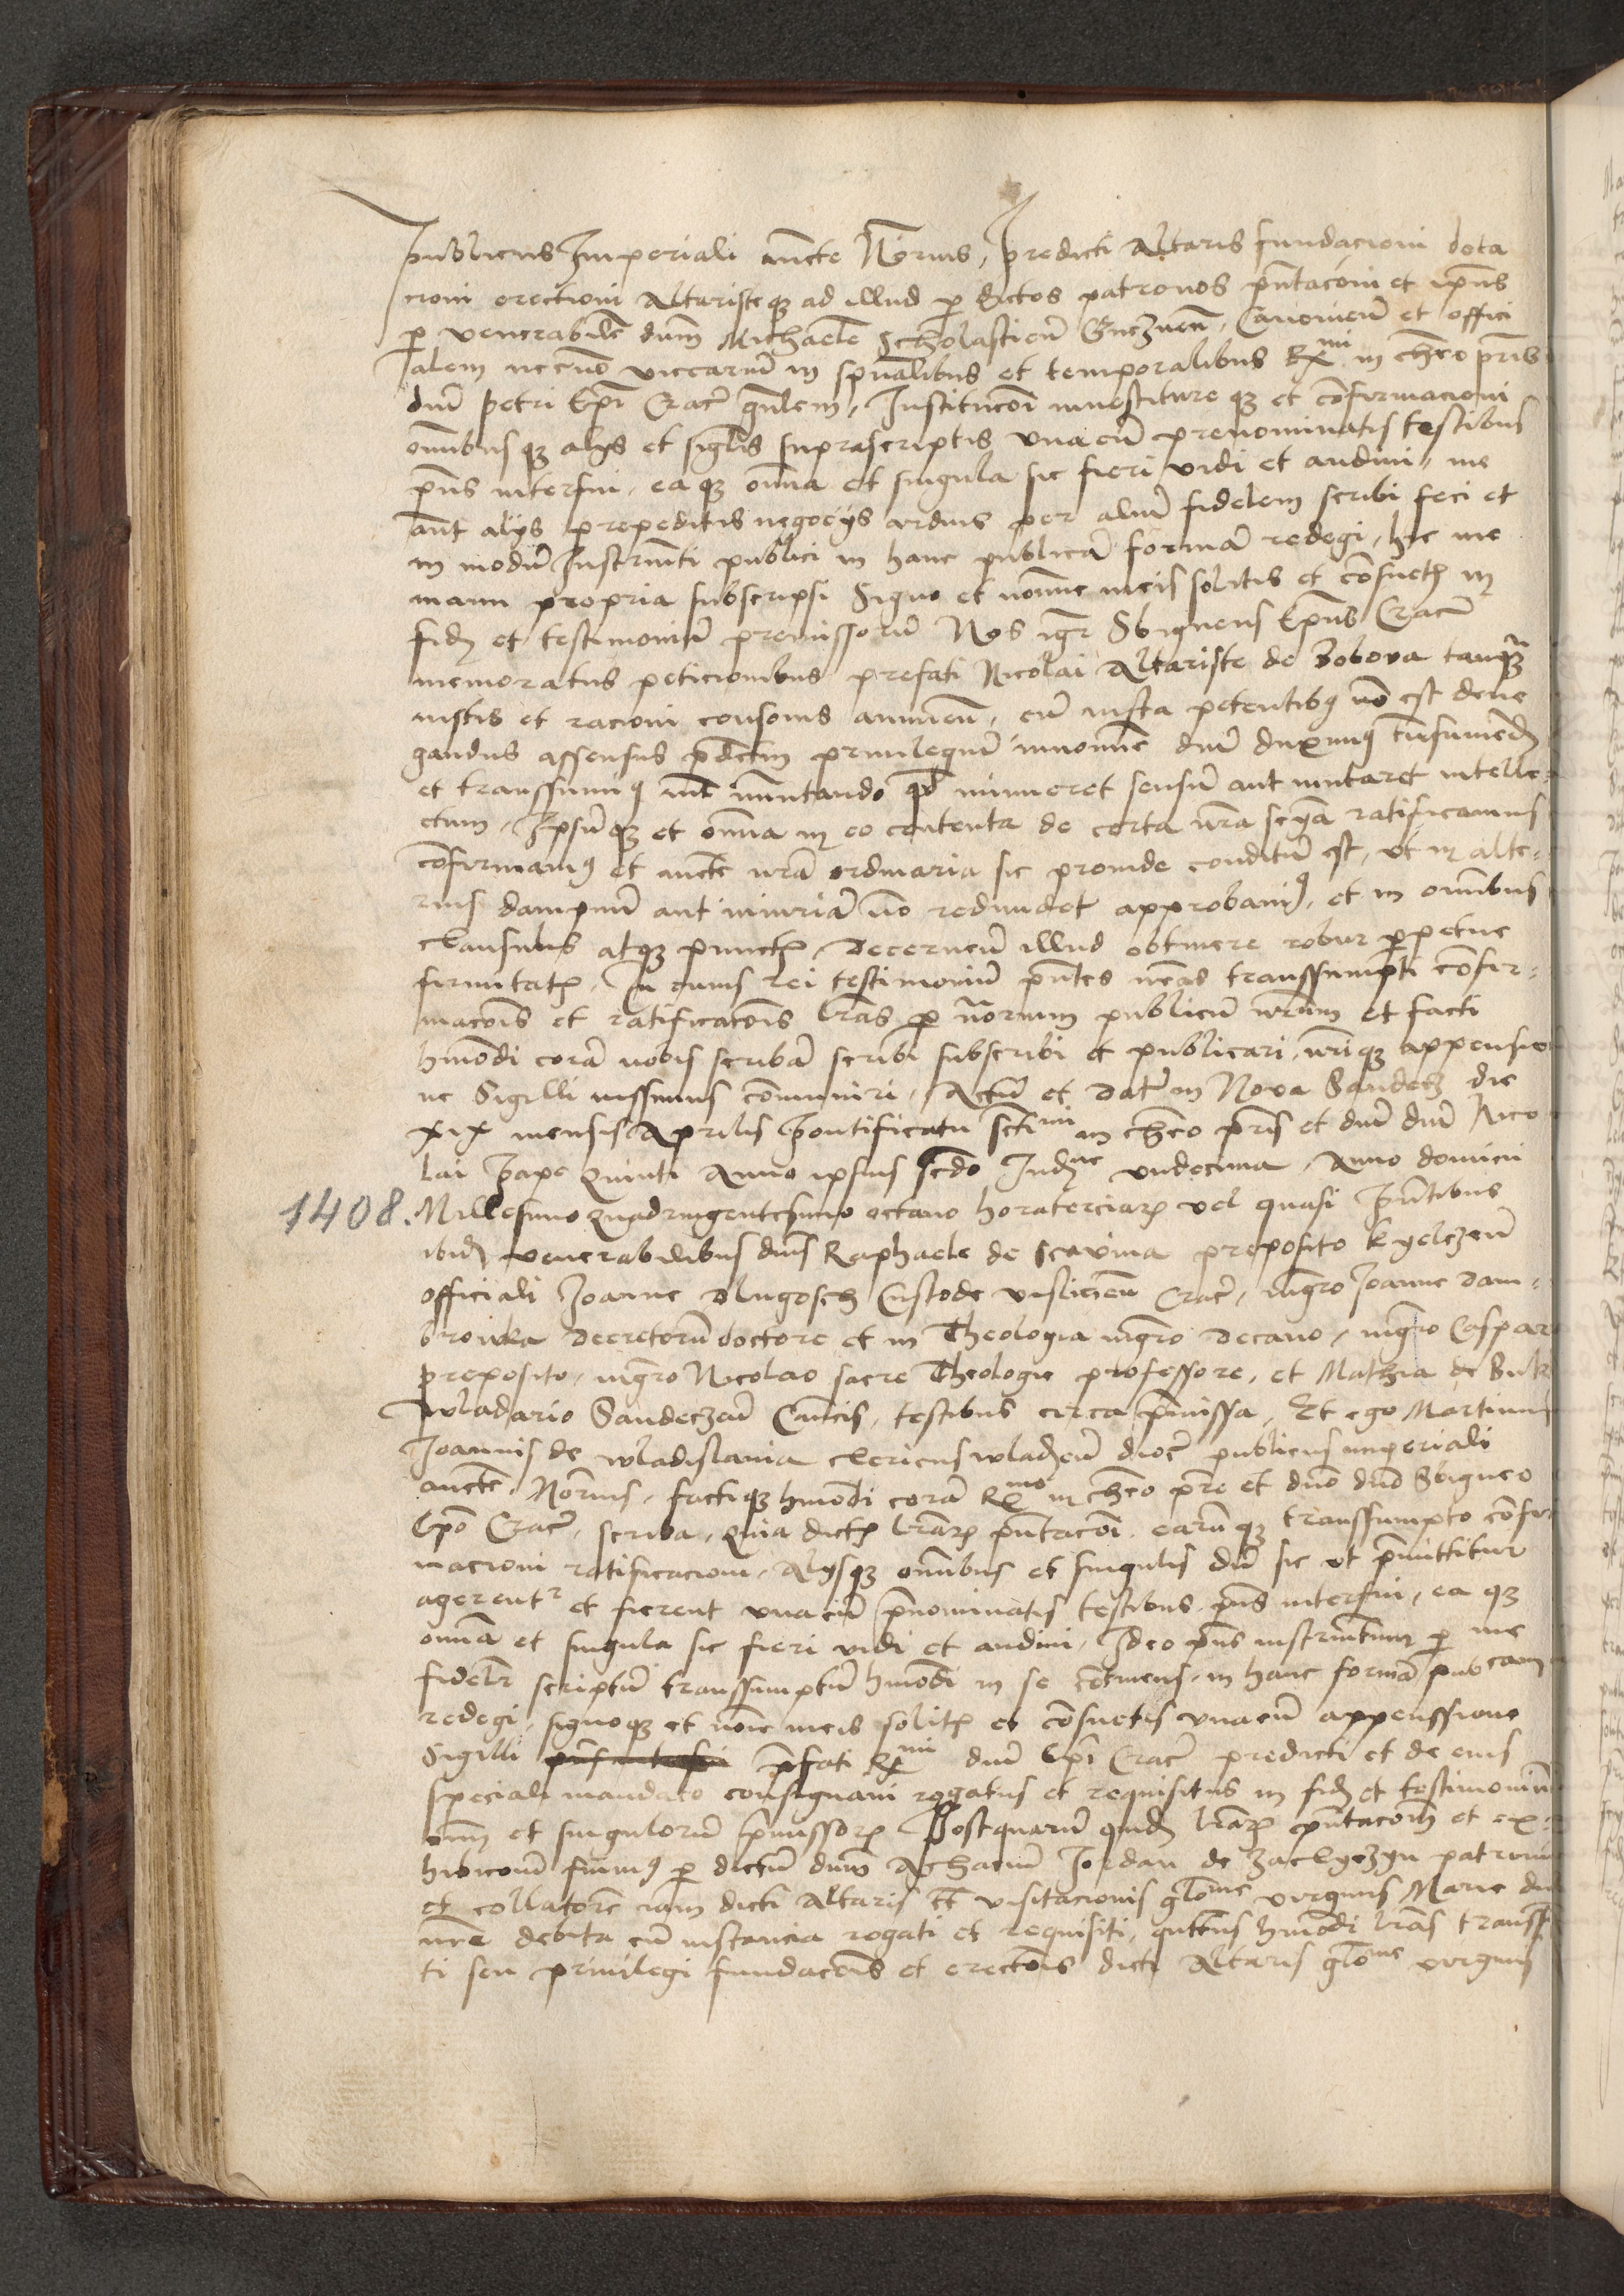 publicus Imperiali aucte Norius, predicti Altaris fundacioni dota
cioni erectioni Altaristeq3 ad illud p dictos patronos pntaconi et ipius
p venerabile dnm Michaele Scholasticu Gneznen, Canonicu et offici
alem necno vicariu in spualibus et temporalibus Rmi in chro pris
dni Petri Epi Crac gnlem, Institucoi investitureq3 et confirmacioni
omnibusq3 alys et siglis suprascriptis unacu prenominatis testibus
pns interfui, eaq3 omia et singula sic fieri vidi et audivi, me
aut alijs prepeditis negocijs arduis per aliu fidelem scribi feci et
in modu Instrumti publici in hanc publica forma redegi, hic me
manu propria subscripsi Signo et nomine meis solitis et consuet in
fid et testimoniu premissoru Nos igr Sbigneus Epus Crac
memoratus peticionibus prefati Nicolai Altariste de Bobova tanq3
iustis et racioni consonis annuen, cu iusta petentibus no est dene
gandus assensus pdctm privilegiu innomine dni duximus tnsumend
et transsumimus nil mutando qd minueret sensu aut mutaret intelle-
ctum, Ipsuq3 et omia in eo contenta de certa nra scia ratificamus
confirmamus et aucte nra ordinaria sic proinde conditu est, ut in alte-
rius dampnu aut iniuria no redundet approbamus, et in omnibus
clausulis atq3 punctis, Decernen illud obtinere robur perpetue
firmitatis, In cuius rei testimoniu pntes nras transsumpti confir-
macois et ratificacois lras p norium publicu nrum et facti
hmodi cora nobis scriba scribi subscribi et publicari, nriq3 appensio
ne Sigilli iussimus communiri, Actu et Dat in Nova Sandecz die
xix mensis Aprilis Pontificatu sctimi in chro pris et dni dni Nico
lai Pape Quinti Anno ipsius secdo Indne undecima, Anno domini
1408. Millesimo quadringentesimo octavo hora terciar vel quasi Pntibus
ibid venerabilibus dnis Raphaele de Scavina preposito Kyelczen
officiali Joanne Dlugosch Custode Vislicien Crac, Mgro Joanne Dam-
browka Decretoru doctore et in Theologia mgro Decano, mgro Caspar
preposito, mgro Nicolao sacre Theologie professore, et Mathia de Buk
Wladario Sandeczen Cunctis, testibus circa pmissa, Et ego Martinus
Joannis de Wladislavia clericus Wladen dioc publicus imperiali
aucte, Norius, factiq3 hmodi cora Rmo in chro pre et dno dno Sbigneo
Epo Crac, scriba, quia dict lrar pntacoi earuq3 transsumpto confir
macioni ratificacioni, Alysq3 omnibus et singulis du sic ut pmittitur
agerentr et fierent unacu pnominatis testibus pns interfui, eaq3
omia et singula sic fieri vidi et audivi, Ideo pns instrumtum p me
fidelr scriptu transsumptu hmodi in se continens, in hanc forma publicam
redegi, signoq3 et noie meis solit et consuetis unacum appenssione
Sigilli pfati Rmi dni Epi Crac predicti et de eius
speciali mandato consignavi rogatus et requisitus in fid et testimoniu
omi et singuloru pmissor Postquaru quid lrar pntacois et ex-
hibicom fuimus p dictu dnm Achaciu Jordan de Zaclyczyn patronu
et collatore iam dicti Altaris tt visitacionis gloriose virginis Marie
debita cu instancia rogati et requisiti, qutnus hmodi lras transs
ti seu privilegi fundacois et erectois dicti Altaris gloriose virginis